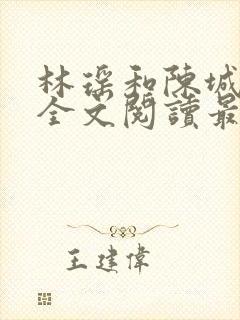 林瑶和陳城
全文閱讀最
王建偉